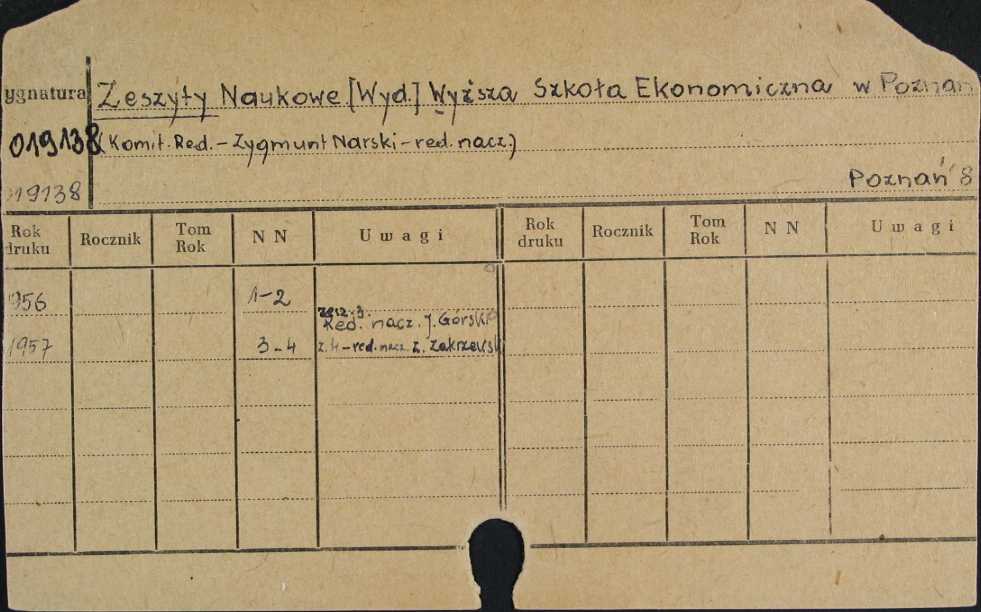 ygnatura Zeszyty Naukowe [Wyd.] Wyższa Szkoła Ekonomiczna w Poznan
019138 (Komit. Red. - Zygmunt Narski - red. nacz.)
19138 Poznań 8
Rok druku Rocznik Tom Rok N N Uwagi Rok druku Rocznik Tom Rok N N Uwagi
956 1-2
zesz. 3.
Red. nacz. J. Górski
1957 3-4 z. 4 - red. nacz. Z. Zakrzewski